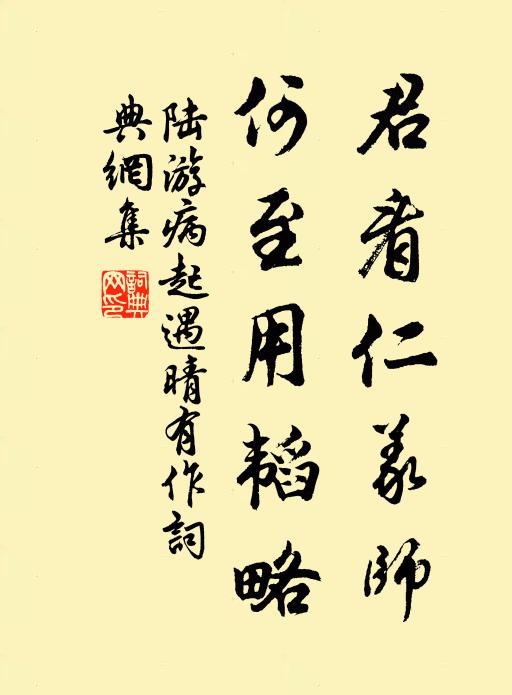 君看仁义師
何至用韬略
陆游病起遇晴有作詞
典網集
詞典
网印